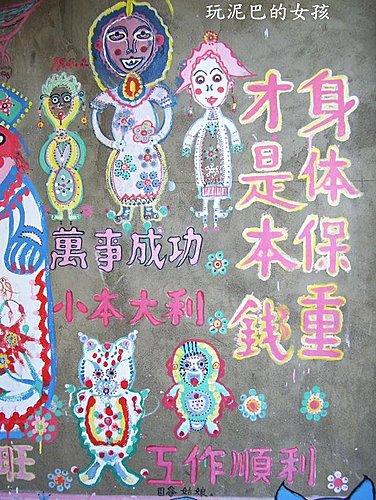 玩泥巴的女孩
身体保重
才是本錢
萬事成功
小本大利
旺
工作順利
姑娘